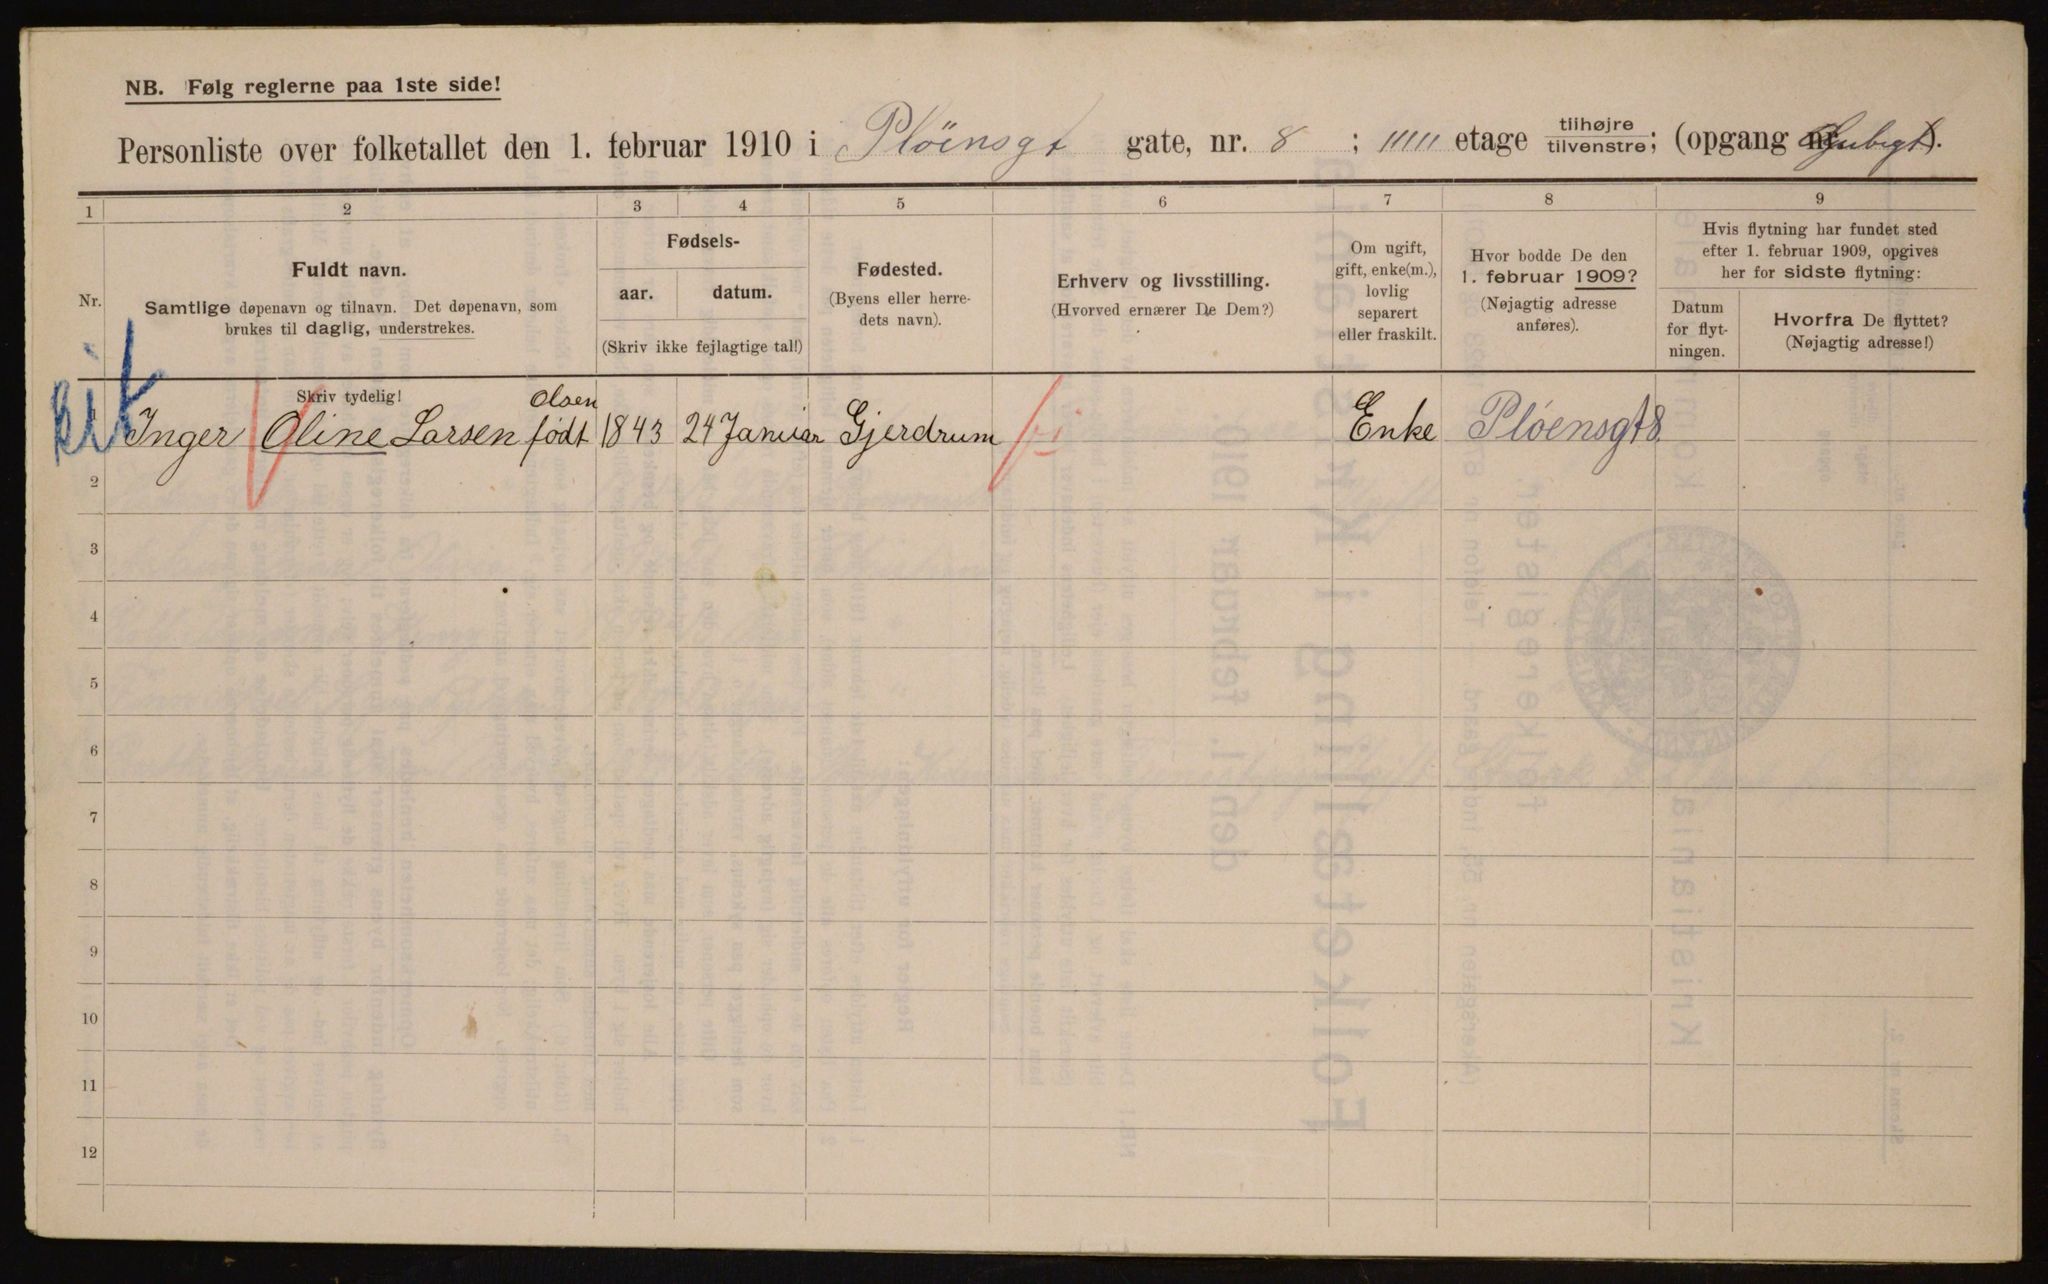 NB. Følg reglerne paa 1ste side!
Personliste over folketallet den 1. februar 1910 i Plöensgt gate, nr. 8 ; etage tilhøjre tilvenstre; (opgang nr. ).
1 2 3 4 5 6 7 8 9
Nr.
Fuldt navn.
Samtlige døpenavn og tilnavn. Det døpenavn, som
brukes til daglig, understrekes.
Fødsels-
aar. datum.
(Skriv ikke fejlagtige tal!)
Fødested.
(Byens eller herre-
dets navn).
Erhverv og livsstilling.
(Hvorved ernærer De Dem?)
Om ugift,
gift, enke(m.),
lovlig
separert
eller fraskilt.
Hvor bodde De den
1. februar 1909?
(Nøjagtig adresse
anføres).
Hvis flytning har fundet sted
efter 1. februar 1909, opgives
her for sidste flytning:
Datum
for flyt-
ningen.
Hvorfra De flyttet?
(Nøjagtig adresse!)
Skriv tydelig!
Olsen
Inger Oline Larsen født 1843 24 Januar Gjerdrum Enke Plöensgt 8.
2
3
4
5
6
7
8
9
10
11
12